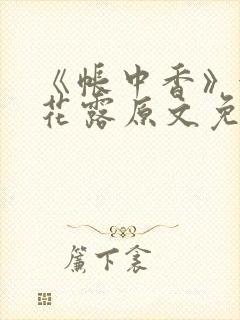 《帐中香》
花露原文免
簾下衾